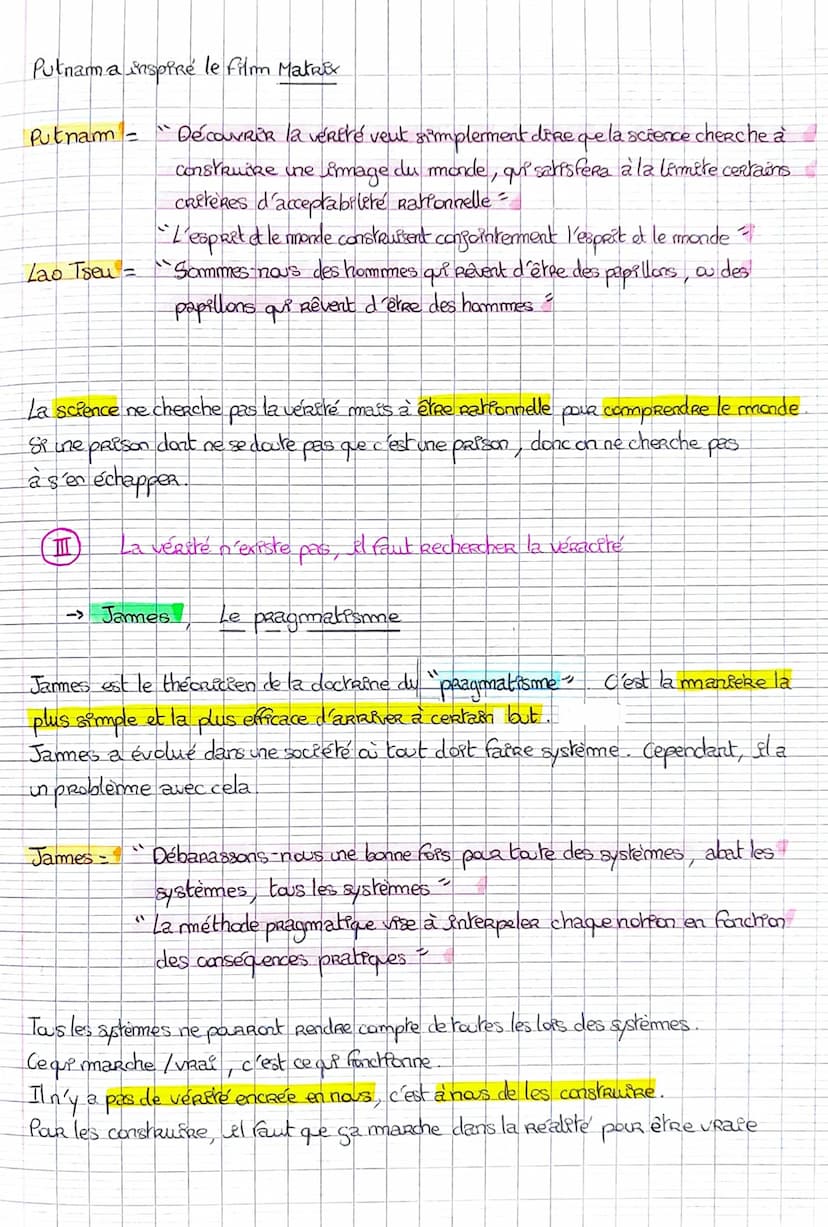 Putnam a inspiré le film Matrix
Putnam = "Découvrir la vérité veut simplement dire que la science cherche à
construire une image du monde, qui satisfera à la limite certains
critères d'acceptabilité rationnelle"
"L'esprit et le monde construisent conjointement l'esprit et le monde"
Lao Tseu = "Sommes-nous des hommes qui rêvent d'être des papillons, ou des
papillons qui rêvent d'être des hommes"
La science ne cherche pas la vérité mais à être rationnelle pour comprendre le monde.
Si une prison dont ne se doute pas que c'est une prison, donc on ne cherche pas
à s'en échapper.
III La vérité n'existe pas, il faut rechercher la véracité
→ James, Le pragmatisme
James est le théoricien de la doctrine du "pragmatisme". C'est la manière la
plus simple et la plus efficace d'arriver à certain but.
James a évolué dans une société où tout doit faire système. Cependant, il a
un problème avec cela.
James = "Débarassons-nous une bonne fois pour toute des systèmes, abat les
systèmes, tous les systèmes"
"La méthode pragmatique vise à interpeler chaque notion en fonction
des conséquences pratiques"
Tous les systèmes ne pourront rendre compte de toutes les lois des systèmes.
Ce qui marche / vrai, c'est ce qui fonctionne.
Il n'y a pas de vérité encrée en nous, c'est à nous de les construire.
Pour les construire, il faut que ça marche dans la réalité pour être vraie